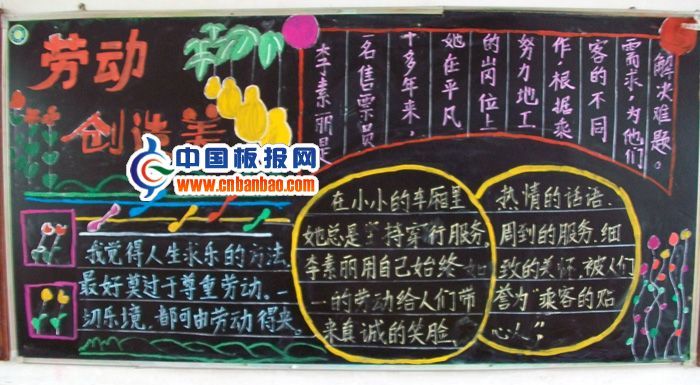 劳动
创造美
中国板报网
www.cnbanbao.com
李素丽是
一名售票员
十多年来，
她在平凡
的岗位上
努力地工
作，根据乘
客的不同
需求，为他们
解决难题。
我觉得人生求乐的方法，
最好莫过于尊重劳动。一
切乐境，都可由劳动得来。
在小小的车厢里
她总是坚持穿行服务。
李素丽用自己始终如
一的劳动给人们带
来真诚的笑脸、
热情的话语、
周到的服务、细
致的关怀，被人们
誉为“乘客的贴
心人”。